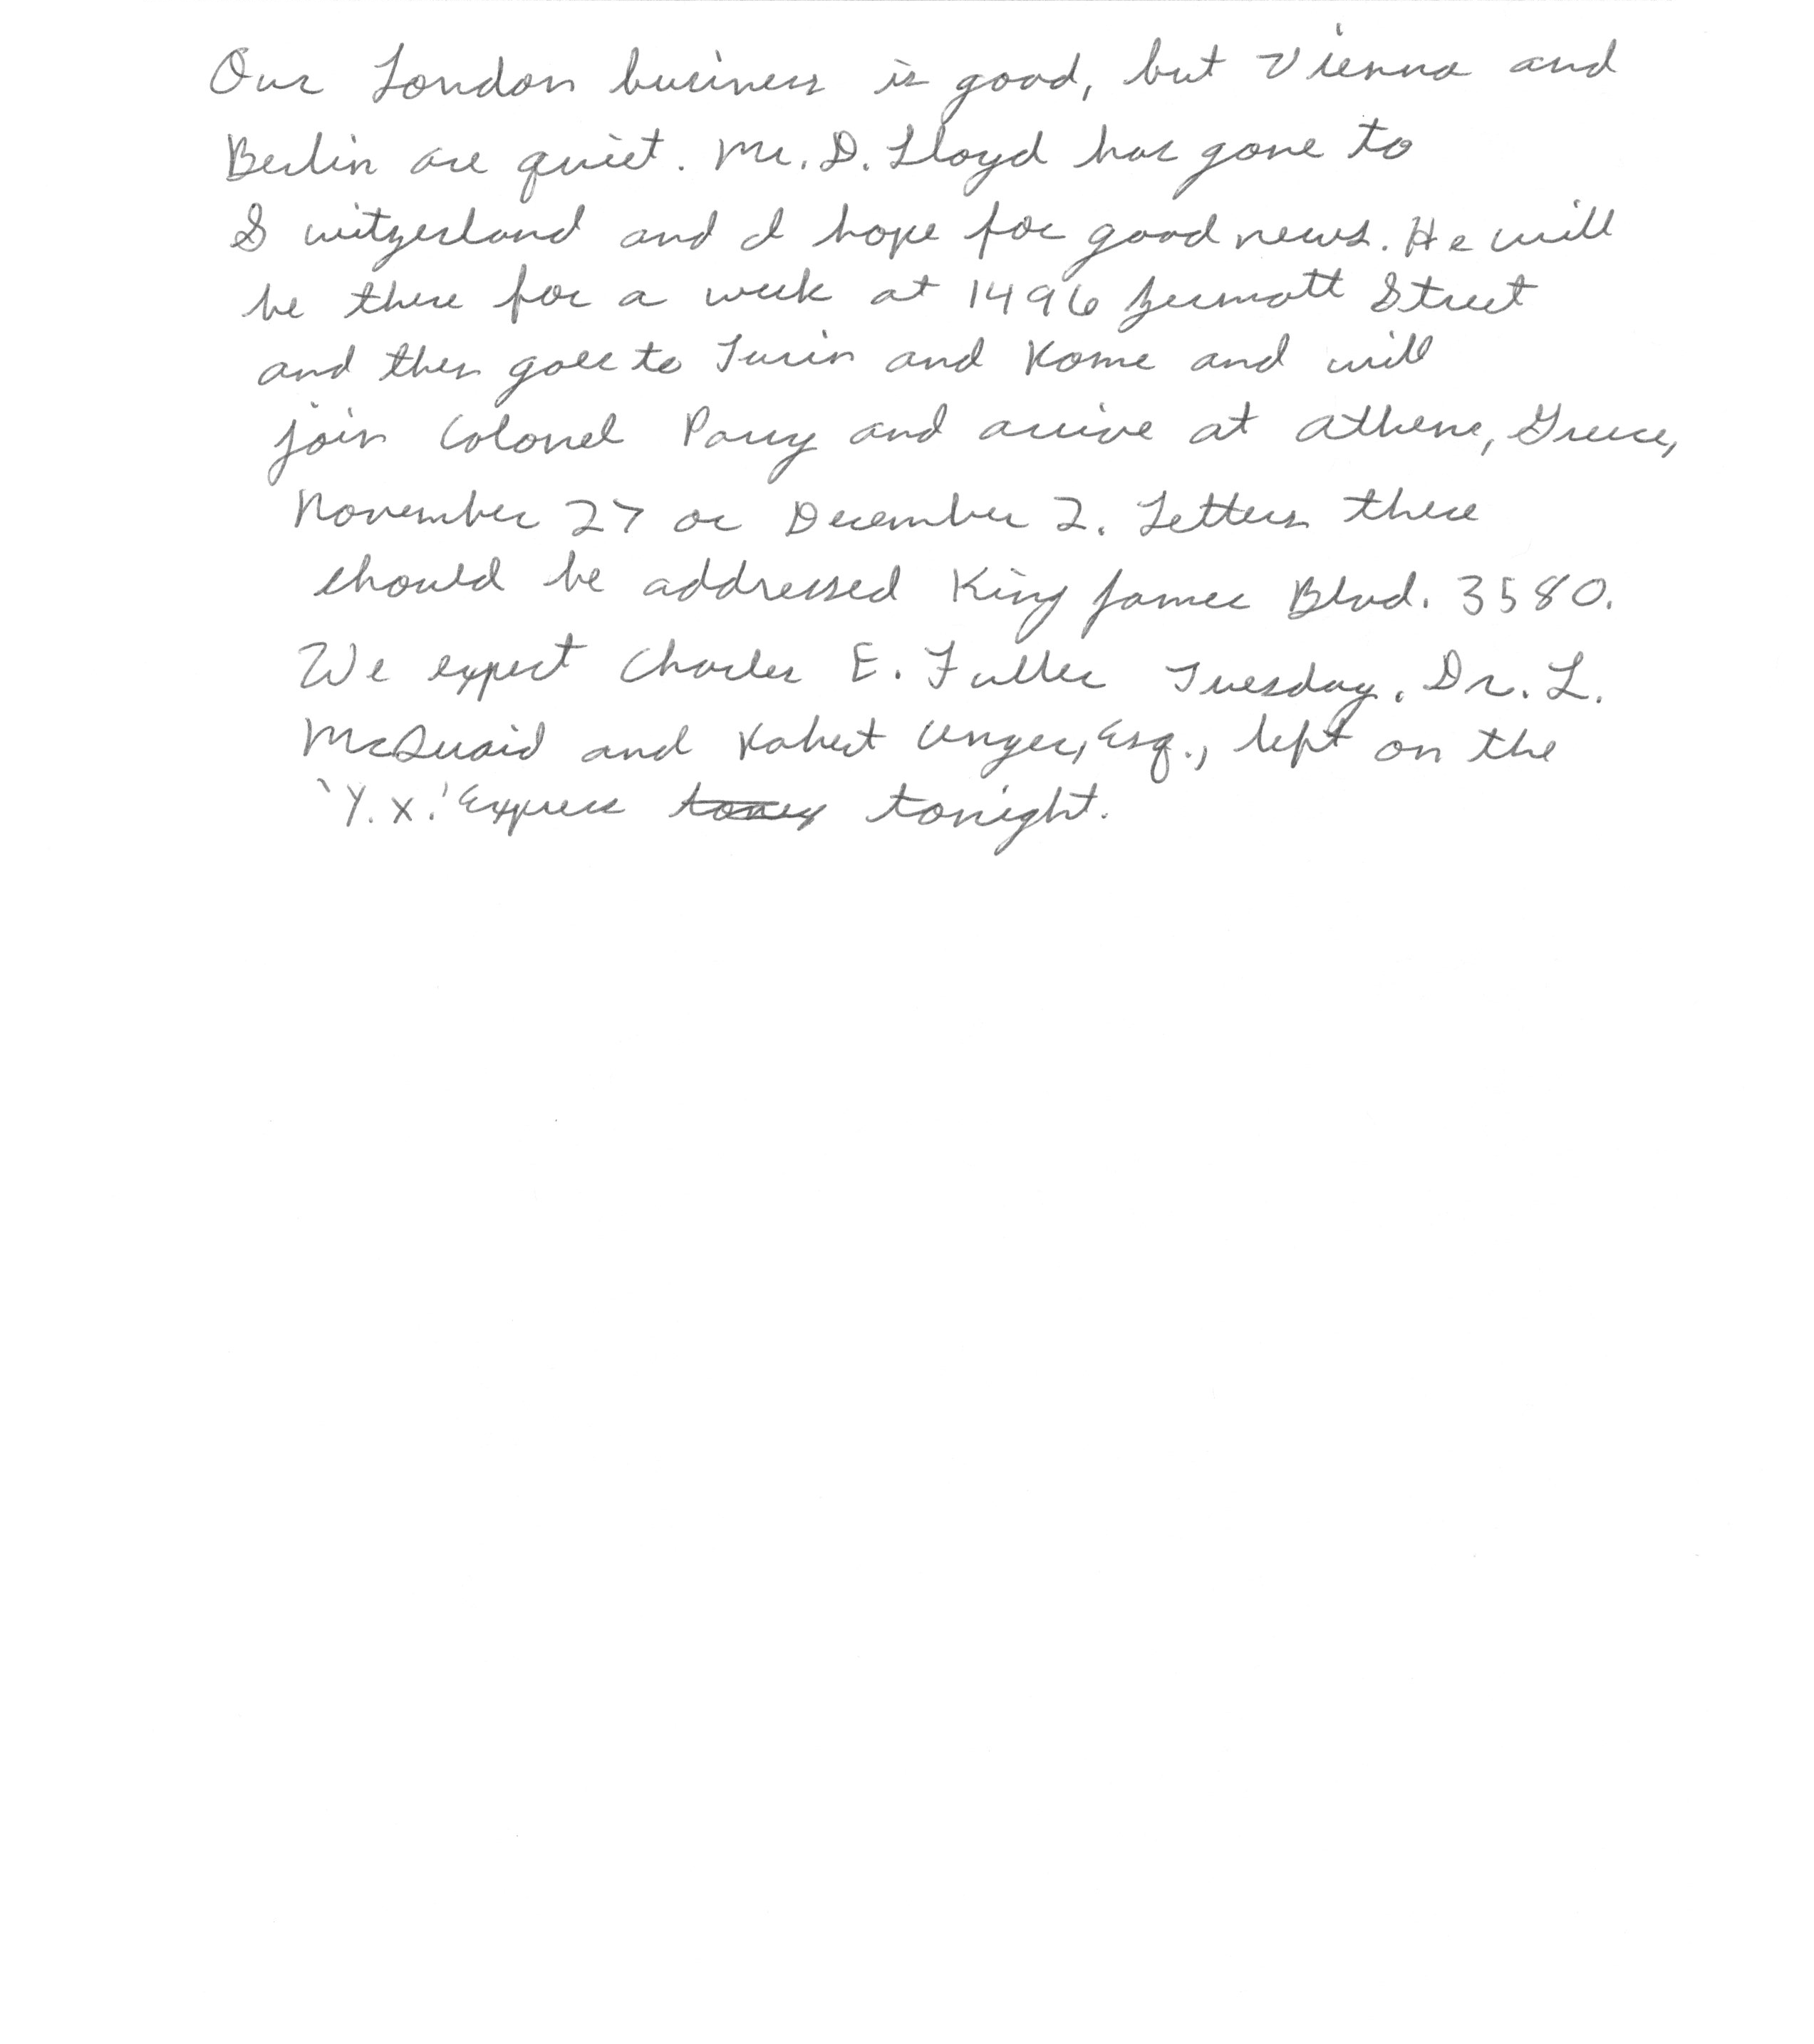 Our London business is good, but Vienna and
Berlin are quiet. Mr. D. Lloyd has gone to
Switzerland and I hope for good news. He will
be there for a week at 1496 Zermott Street
and then goes to Turin and Rome and will
join Colonel Parry and arrive at Athens, Greece,
November 27 or December 2. Letters there
should be addressed King James Blvd. 3580.
We expect Charles E. Fuller Tuesday. Dr. L.
McQuaid and Robert Unger, Esq., left on the
'Y.X.' Express tonight.